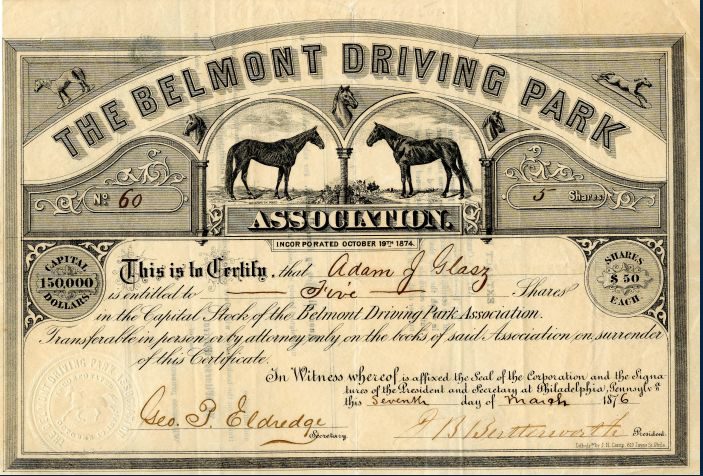 THE BELMONT DRIVING PARK
No 60
5 Shares
ASSOCIATION.
INCORPORATED OCTOBER 19TH 1874.
CAPITAL
150,000
DOLLARS.
SHARES
$50
EACH
This is to Certify, that Adam J Glasz
is entitled to Five Shares
in the Capital Stock of the Belmont Driving Park Association.
Transferable in person or by attorney only on the books of said Association, on surrender
of this Certificate.
In Witness whereof is affixed the Seal of the Corporation and the Signa-
tures of the President and Secretary at Philadelphia, Pennsylva
this Seventh day of March 1876
Geo. P. Eldredge
Secretary.
Butterworth
President.